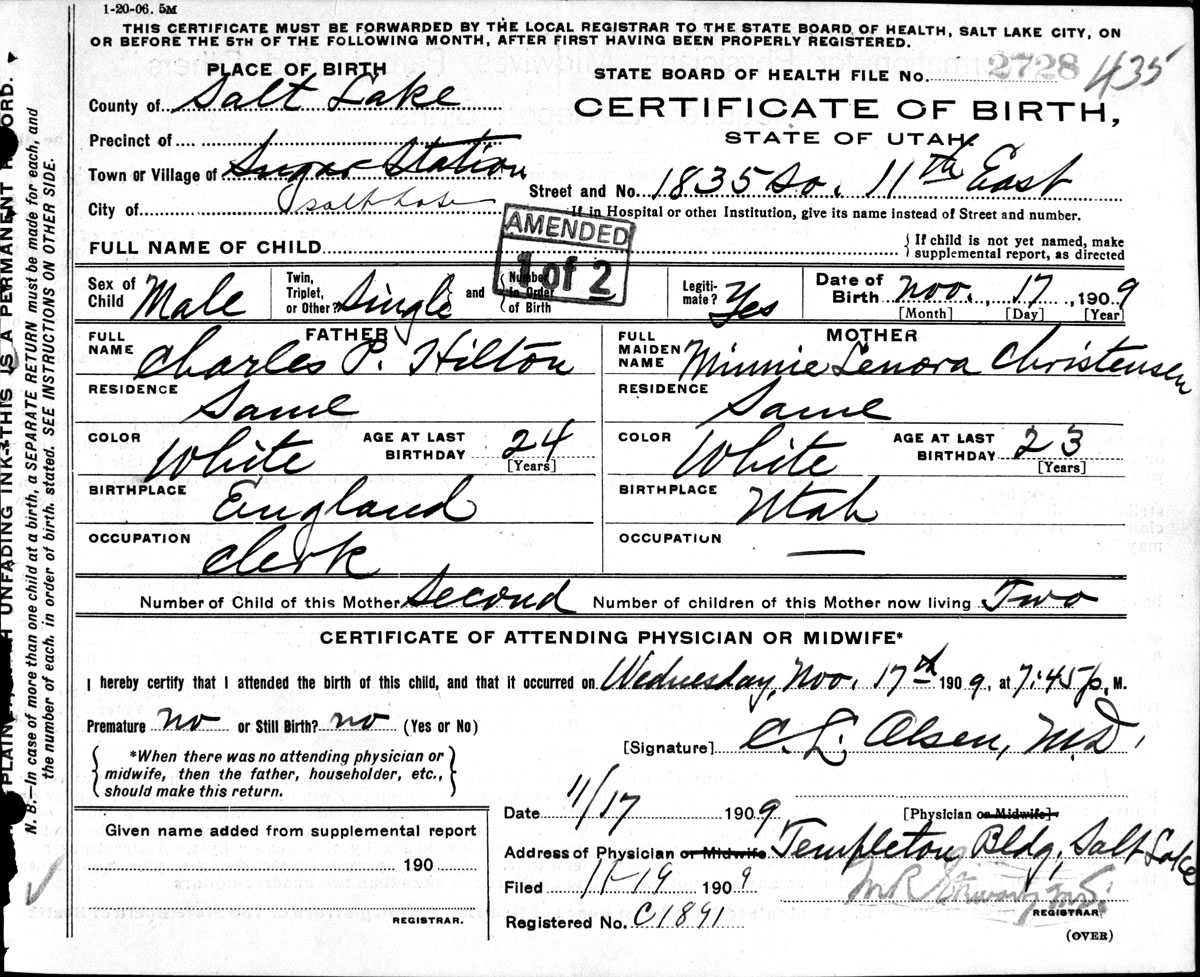 1-20-06. 5M
THIS CERTIFICATE MUST BE FORWARDED BY THE LOCAL REGISTRAR TO THE STATE BOARD OF HEALTH, SALT LAKE CITY, ON
OR BEFORE THE 5TH OF THE FOLLOWING MONTH, AFTER FIRST HAVING BEEN PROPERLY REGISTERED.
PLACE OF BIRTH
STATE BOARD OF HEALTH FILE No. 2728 435
County of Salt Lake
CERTIFICATE OF BIRTH,
STATE OF UTAH.
Precinct of
Town or Village of Sugar Station
Street and No. 1835 So. 11th East
City of Salt Lake
If in Hospital or other Institution, give its name instead of Street and number.
AMENDED
1 of 2
FULL NAME OF CHILD
If child is not yet named, make
supplemental report, as directed
Sex of Child Male
Twin, Triplet, or Other? Single and Number in Order of Birth
Legiti-mate? Yes
Date of Birth Nov. 17, 1909
[Month] [Day] [Year]
FATHER
FULL NAME Charles P. Hilton
RESIDENCE Same
COLOR White AGE AT LAST BIRTHDAY 24
[Years]
BIRTHPLACE England
OCCUPATION Clerk
MOTHER
FULL MAIDEN NAME Minnie Lenora Christensen
RESIDENCE Same
COLOR White AGE AT LAST BIRTHDAY 23
[Years]
BIRTHPLACE Utah
OCCUPATION —
Number of Child of this Mother Second Number of children of this Mother now living Two
CERTIFICATE OF ATTENDING PHYSICIAN OR MIDWIFE*
I hereby certify that I attended the birth of this child, and that it occurred on Wednesday, Nov. 17th 1909, at 7:45 p. M.
Premature no or Still Birth? no (Yes or No)
[Signature] C. L. Olsen, M.D.
*When there was no attending physician or
midwife, then the father, householder, etc.,
should make this return.
Date 11/17 1909
[Physician or Midwife]
Address of Physician or Midwife Templeton Bldg, Salt Lake
Given name added from supplemental report
190
REGISTRAR.
Filed 11-19 1909
REGISTRAR
Registered No. C1891
(OVER)
N. B.—In case of more than one child at a birth, a SEPARATE RETURN must be made for each, and
the number of each. in order of birth. stated. SEE INSTRUCTIONS ON OTHER SIDE.
UNFADING INK—THIS IS A PERMANENT